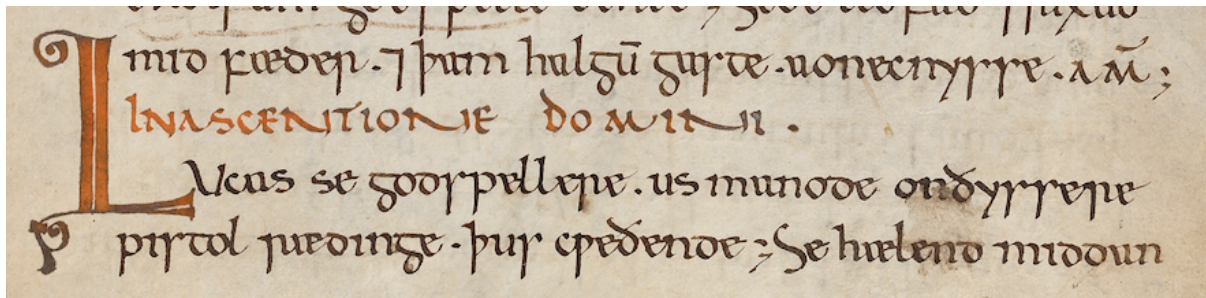 mid fæder. ⁊ þam halgū gaste. aonecnysse. AM̄;
INASCENTIONE DOMINI.
LUcas se godspellere. us manode onðyssere
pistol rædinge. þus cƿeðende; Se hælend middan